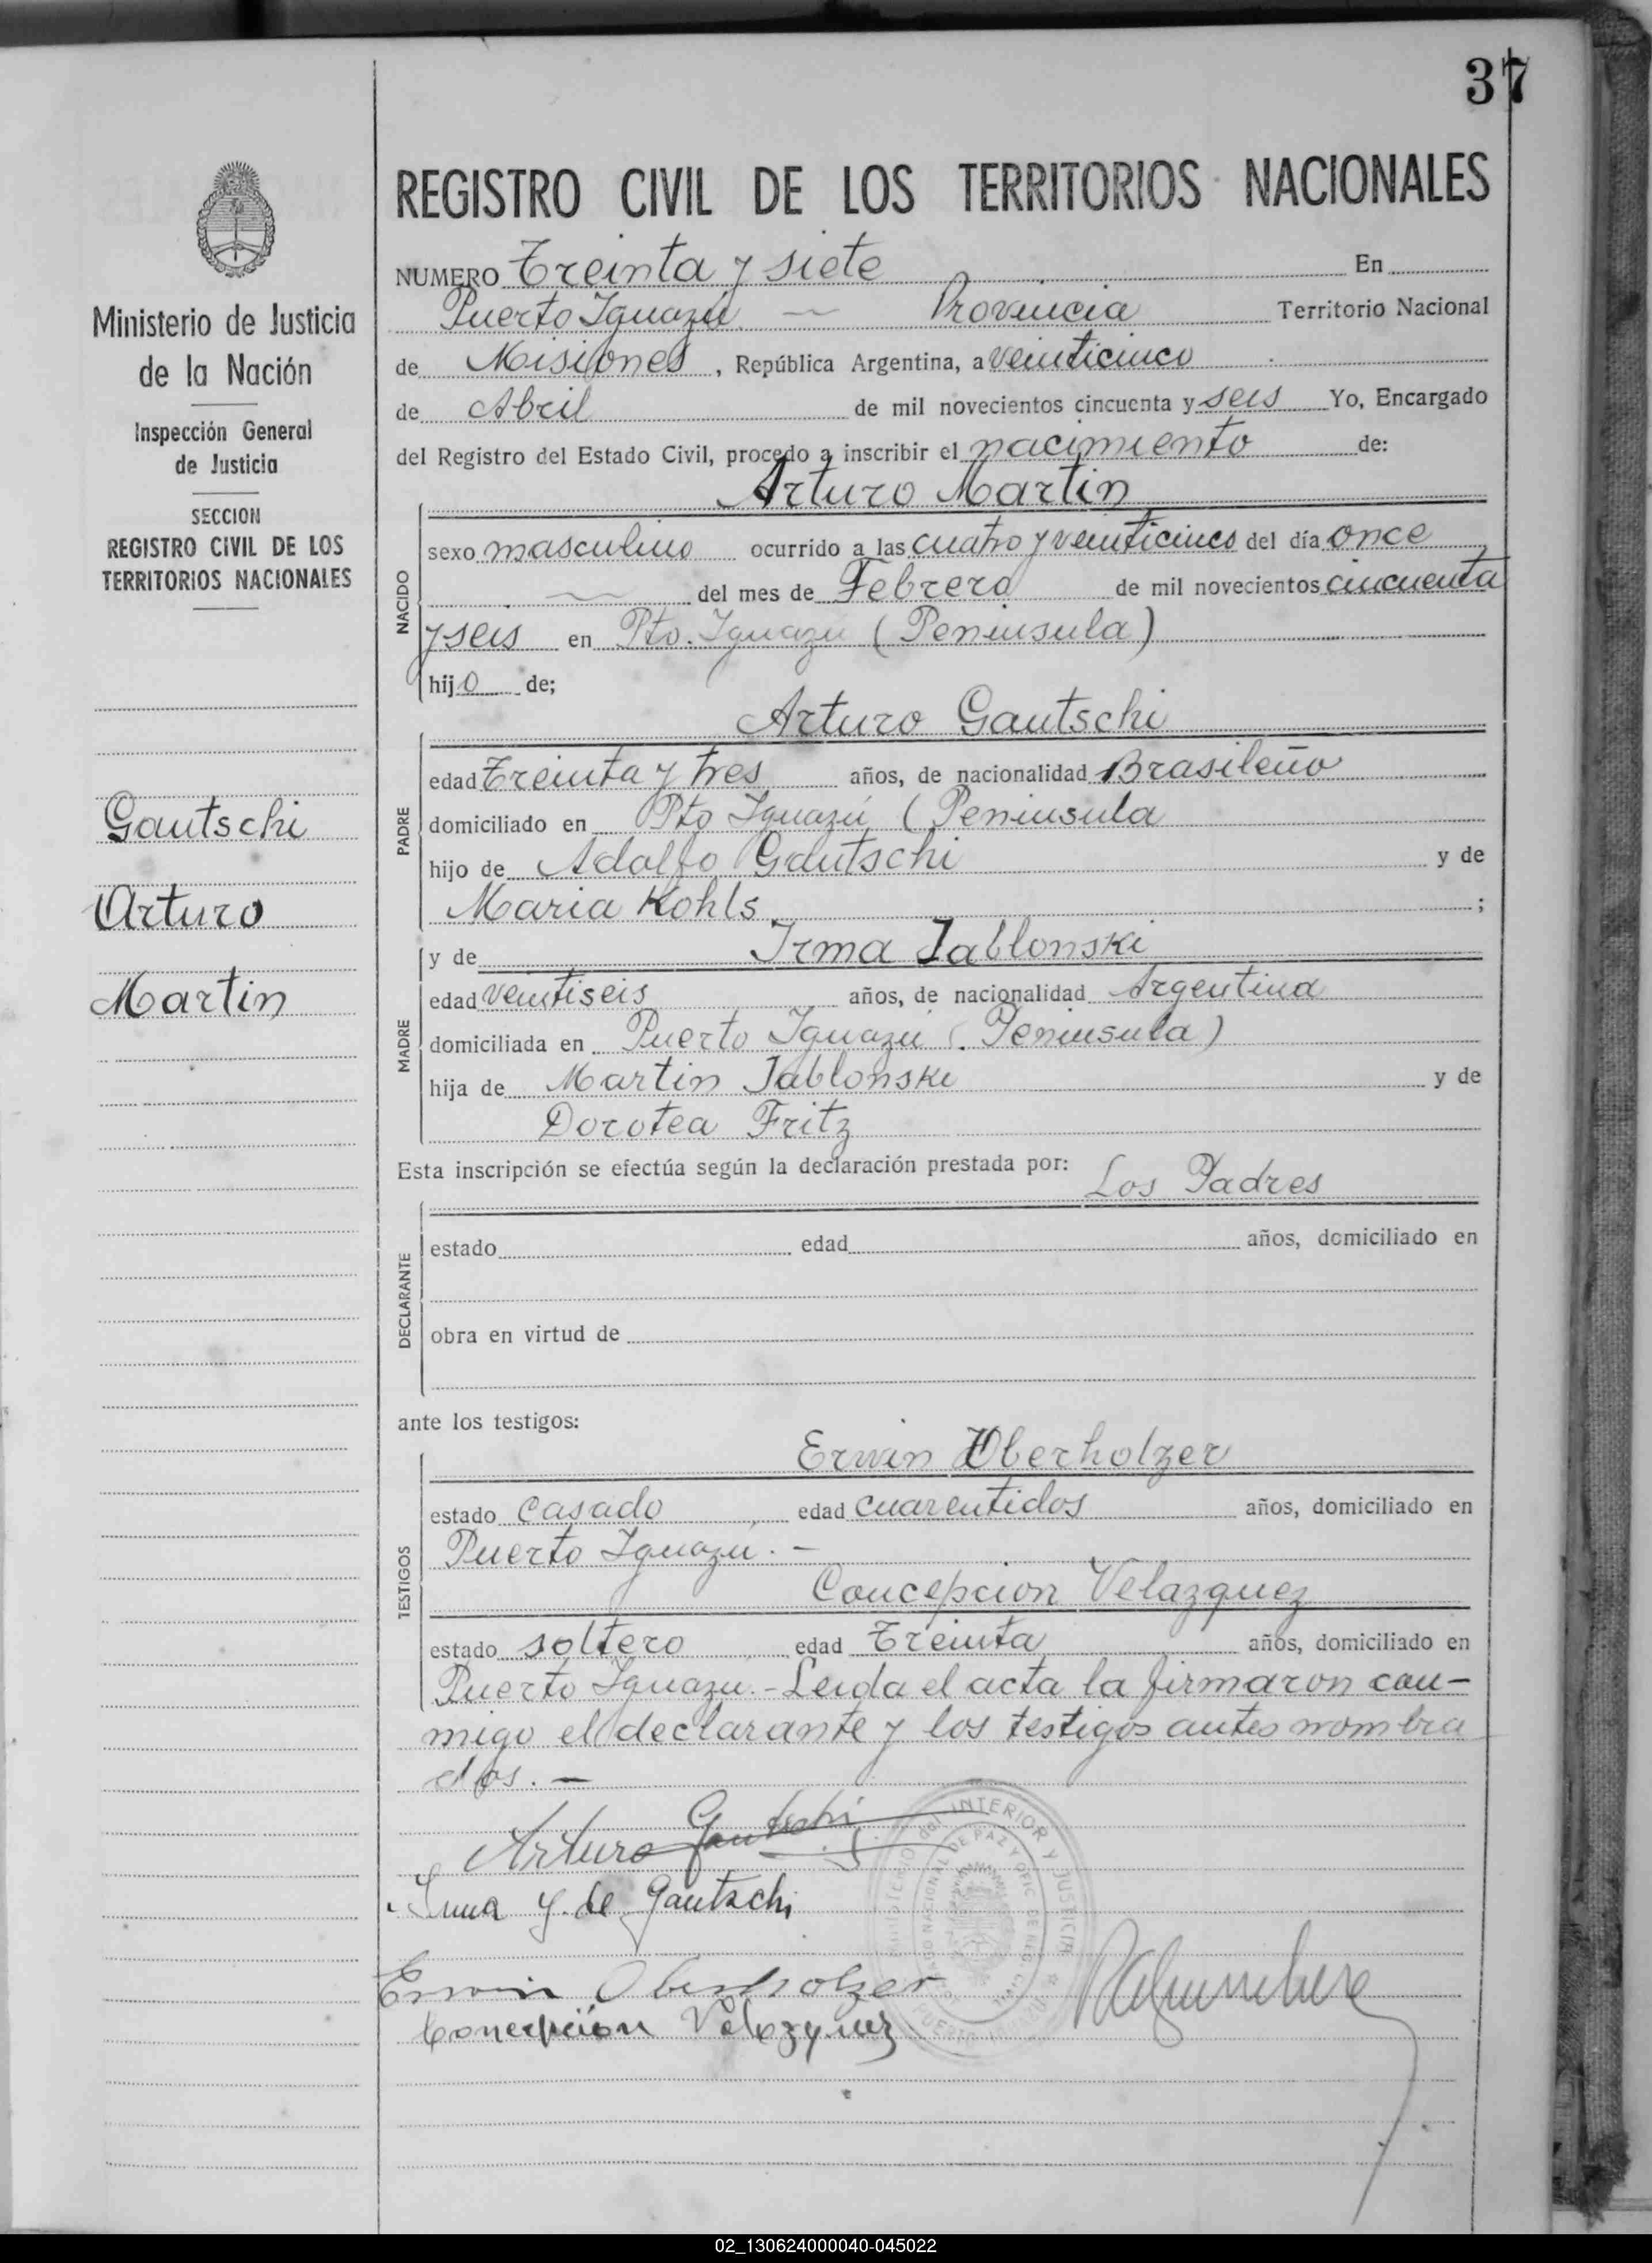 37
REGISTRO CIVIL DE LOS TERRITORIOS NACIONALES
NUMERO Treinta y siete En
Puerto Iguazú — Provincia Territorio Nacional
de Misiones, República Argentina, a veinticinco
de Abril de mil novecientos cincuenta y seis Yo, Encargado
del Registro del Estado Civil, procedo a inscribir el nacimiento de:
Arturo Martin
NACIDO
sexo masculino ocurrido a las cuatro y veinticinco del día once
del mes de Febrero de mil novecientos cincuenta
y seis en Pto. Iguazu (Peninsula)
hijo de;
Arturo Gautschi
PADRE
edad Treinta y tres años, de nacionalidad Brasileño
domiciliado en Pto Iguazú (Peninsula
hijo de Adolfo Gautschi y de
Maria Kohls ;
y de Irma Jablonski
MADRE
edad veintiseis años, de nacionalidad Argentina
domiciliada en Puerto Iguazú (Peninsula)
hija de Martin Jablonski y de
Dorotea Fritz
Esta inscripción se efectúa según la declaración prestada por: Los Padres
DECLARANTE
estado edad años, domiciliado en
obra en virtud de
ante los testigos:
Erwin Oberholzer
TESTIGOS
estado casado edad cuarentidos años, domiciliado en
Puerto Iguazu. –
Concepcion Velazquez
estado soltero edad Treinta años, domiciliado en
Puerto Iguazu. – Leida el acta la firmaron con-
migo el declarante y los testigos antes nombra
dos. –
Arturo Gautschi
Irma Y. de Gautschi
Erwin Oberholzer
Concepción Velazquez
INTERIOR Y JUSTICIA
DE PAZ Y OFIC. DE REG. CIVIL
Ministerio de Justicia
de la Nación
Inspección General
de Justicia
SECCION
REGISTRO CIVIL DE LOS
TERRITORIOS NACIONALES
Gautschi
Arturo
Martin
02_130624000040-045022